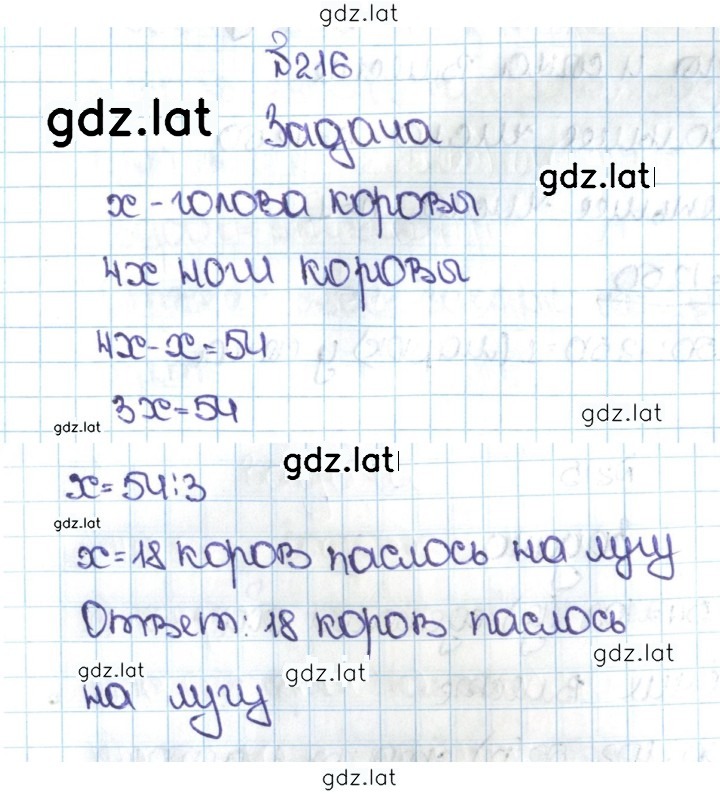 gdz.lat
№216
gdz.lat
Задача
gdz.lat
x - голова коровы
4x ноги коровы
4x - x = 54
3x = 54
gdz.lat
gdz.lat
gdz.lat
x = 54:3
gdz.lat
x = 18 коров паслось на лугу
Ответ: 18 коров паслось
gdz.lat
gdz.lat
gdz.lat
на лугу
gdz.lat